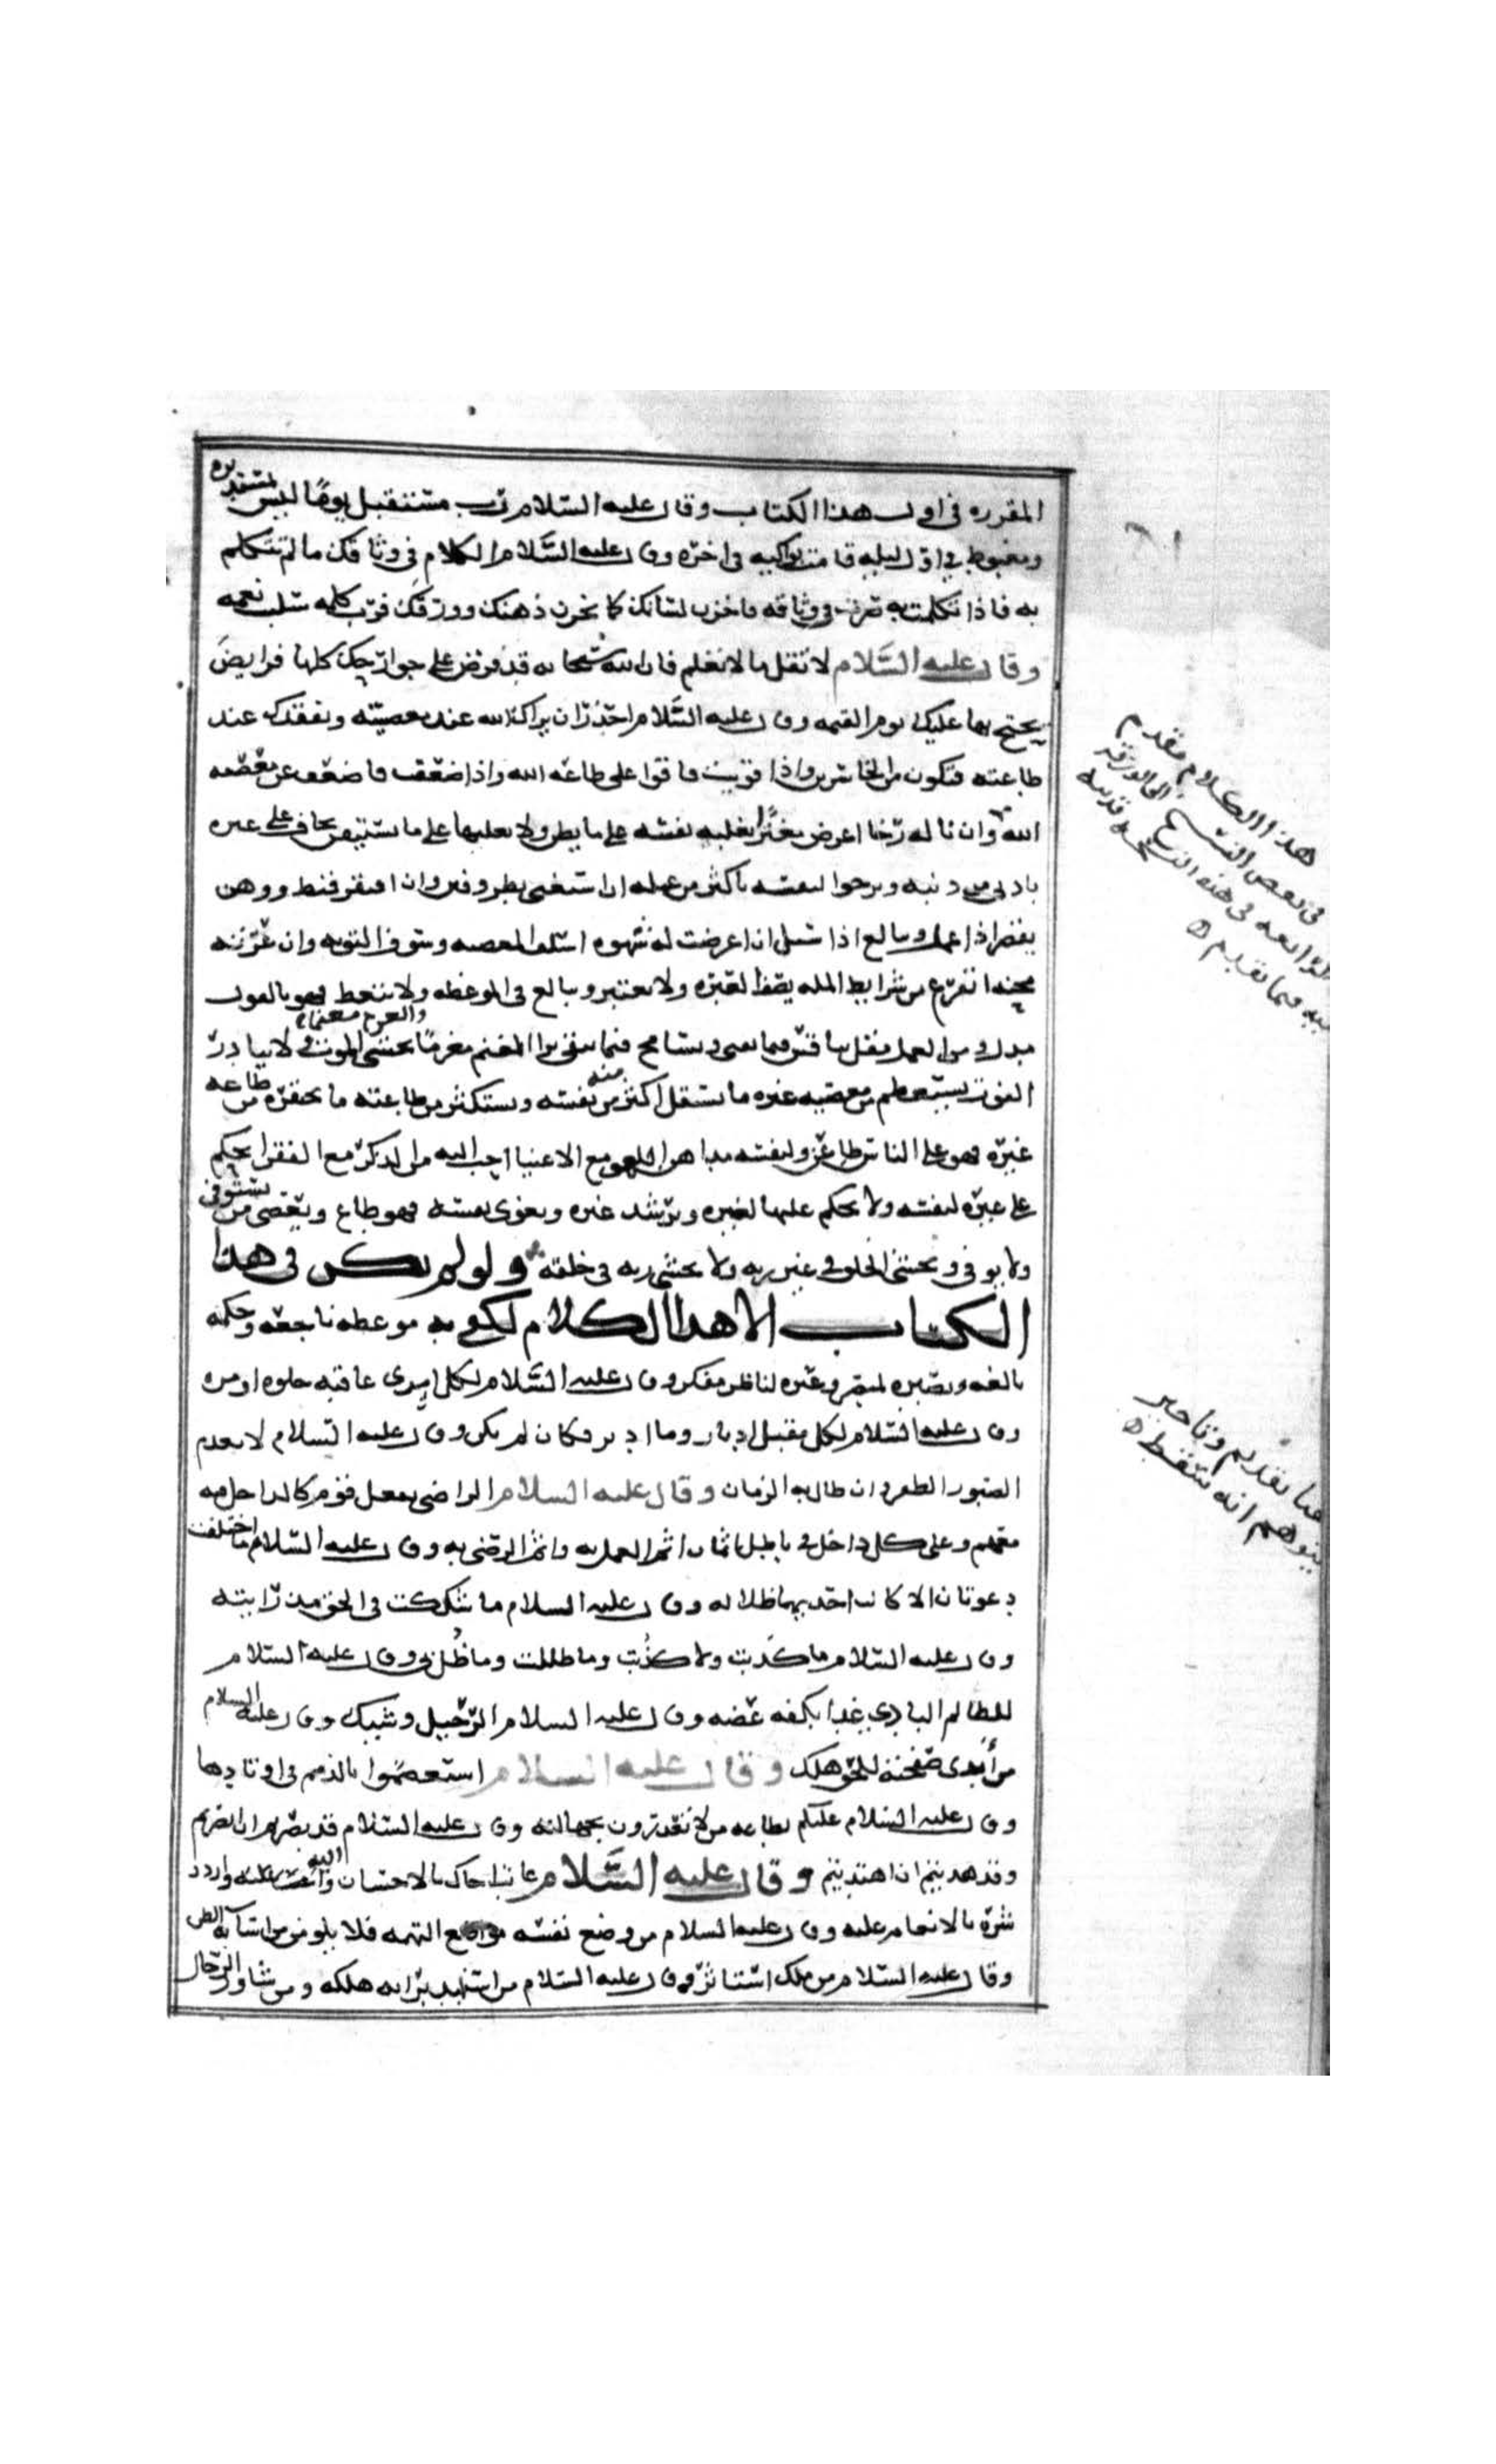 المقرره في اول هذا الكتاب وقال عليه السلام رب مستقبل يوما ليس بمستدبره
ومغبوط في اول ليله قامت بواكيه في اخره وقال عليه السلام الكلام في وثاقك ما لم تتكلم
به فاذا تكلمت به صرت في وثاقه فاخزن لسانك كما تخزن ذهنك وورقك فرب كلمه سلبت نعمه
وقال عليه السلام لا تقل ما لا تعلم فان الله سبحانه قد فرض على جوارحك كلها فرايض
يحتج بها عليك يوم القيمه وقال عليه السلام احذر ان يراك الله عند معصيته ويفقدك عند
طاعته فتكون من الخاسرين واذا قويت فاقوا على طاعه الله واذا ضعفت فاضعف عن معصيه
الله وان ناله رخا اعرض مغترا تغلبه نفسه على ما يظن ولا يغلبها على ما يستيقن يخاف على غيره
بادنى من ذنبه ويرجوا لنفسه باكثر من عمله ان استغنى بطر وفتن وان افتقر قنط ووهن
يقصر اذا عمل ويبالغ اذا سئل ان اعرضت له شهوه اسلف المعصيه وسوف التوبه وان عرته
محنه انفرج عن شرايط المله يصف العبره ولا يعتبر ويبالغ في الموعظه ولا يتعظ فهو بالقول
مدل ومن العمل مقل ينافس فيما يفنى ويسامح فيما يبقى يرا المغنم مغرما والغرم مغنما يخشى الموت ولا يبادر
الفوت يستعظم من معصيه غيره ما يستقل اكثر منه من نفسه ويستكثر من طاعته ما يحقره من طاعه
غيره فهو على الناس طاعن ولنفسه مداهن اللهو مع الاغنيا احب اليه من الذكر مع الفقرا يحكم
على غيره لنفسه ولا يحكم عليها لغيره ويرشد غيره ويغوى نفسه فهو يطاع ويعصى يستوفى
ولا يوفي ويخشى الخلق في غير ربه ولا يخشى ربه في خلقه ولو لم يكن في هذا
الكتاب الا هذا الكلام لكفى به موعظه ناجعه وحكمه
بالغه وبصيره لمبصر وعبره لناظر مفكر وقال عليه السلام لكل امرى عاقبه حلوه او مره
وقال عليه السلام لكل مقبل ادبار وما ادبر فكان لم يكن وقال عليه السلام لا يعدم
الصبور الظفر وان طال به الزمان وقال عليه السلام الراضي بفعل قوم كالداخل فيه
معهم وعلى كل داخل في باطل اثمان اثم العمل به واثم الرضى به وقال عليه السلام ما اختلفت
دعوتان الا كانت احديهما ظلاله وقال عليه السلام ما شككت في الحق مذ رايته
وقال عليه السلام ما كذبت ولا كذبت وما ظللت وما ظل بي وقال عليه السلام
للظالم البادي غدا بكفه عضه وقال عليه السلام الرحيل وشيك وقال عليه السلام
من أبدى صفحته للحق هلك وقال عليه السلام استعصموا بالذمم في اوتادها
وقال عليه السلام عليكم بطاعه من لا تعذرون بجهالته وقال عليه السلام قد بصرتم ان ابصرتم
وقد هديتم ان اهتديتم وقال عليه السلام عاتب اخاك بالاحسان اليه واردد
شره بالانعام عليه وقال عليه السلام من وضع نفسه مواضع التهمه فلا يلومن من اسا به الظن
وقال عليه السلام من ملك استاثر وقال عليه السلام من استبد برايه هلك ومن شاور الرجال
هذا الكلام مقدم
في بعض النسخ الى الورقه
الرابعه في هذه النسخه
فيما تقدم
هنا تقديم وتاخير
يتوهم انه سقط